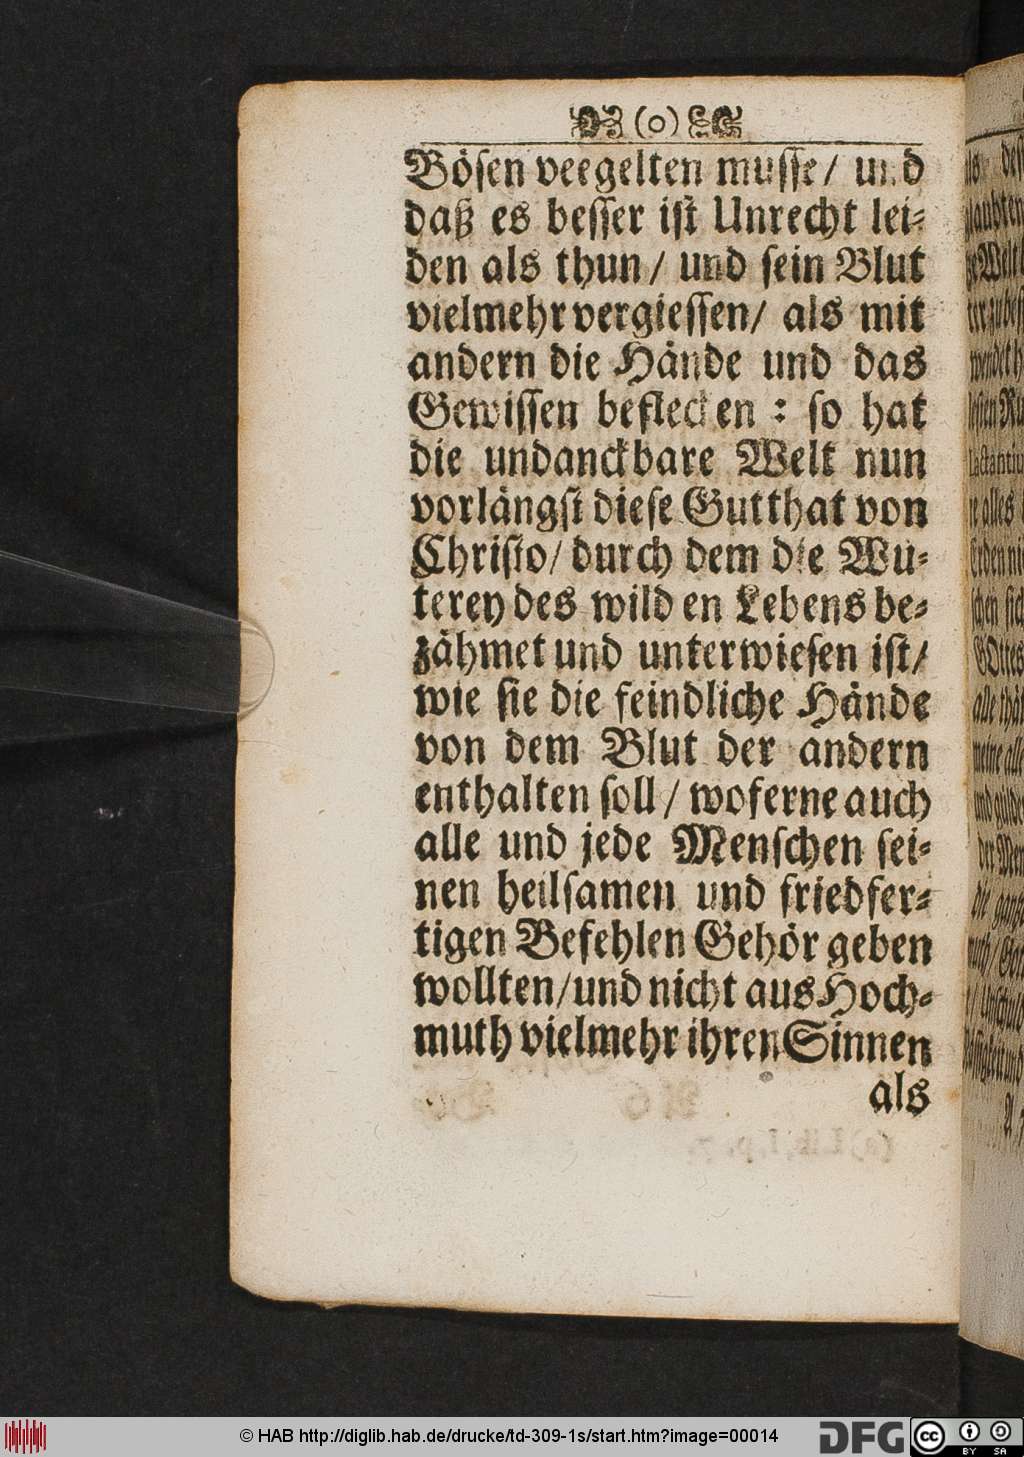 (o)
Bösen veegelten musse/ und
daß es besser ist Unrecht lei-
den als thun/ und sein Blut
vielmehr vergiessen/ als mit
andern die Hände und das
Gewissen beflecken: so hat
die undanckbare Welt nun
vorlängst diese Gutthat von
Christo/ durch dem die Wu-
terey des wilden Lebens be-
zähmet und unterwiesen ist/
wie sie die feindliche Hände
von dem Blut der andern
enthalten soll/ woferne auch
alle und jede Menschen sei-
nen heilsamen und friedfer-
tigen Befehlen Gehör geben
wollten/ und nicht aus Hoch-
muth vielmehr ihren Sinnen
als
© HAB http://diglib.hab.de/drucke/td-309-1s/start.htm?image=00014
DFG
cc BY SA